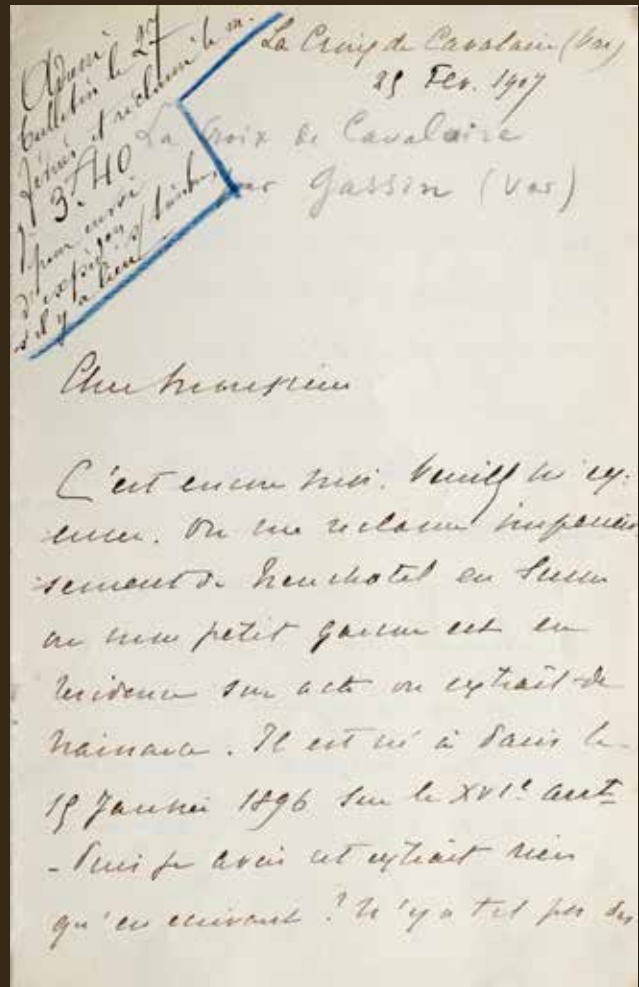 Adressé
bulletin le 27
février et réclamé le m.
3f.40
pour envoi
d'expédition s/ timbre
s'il y a lieu
La Croix de Cavalaire (Var)
25 Fév. 1907
La Croix de Cavalaire
par Gassin (Var)
Cher Monsieur
C'est encore moi. Veuillez m'ex-
cuser. On me réclame impérieu
sement de Neuchatel en Suisse
où mon petit garçon est en
résidence son acte ou extrait de
naissance. Il est né à Paris le
15 Janvier 1896 sur le XVIe arrt
- Puis je avoir cet extrait rien
qu'en écrivant ? N'y a t il pas des